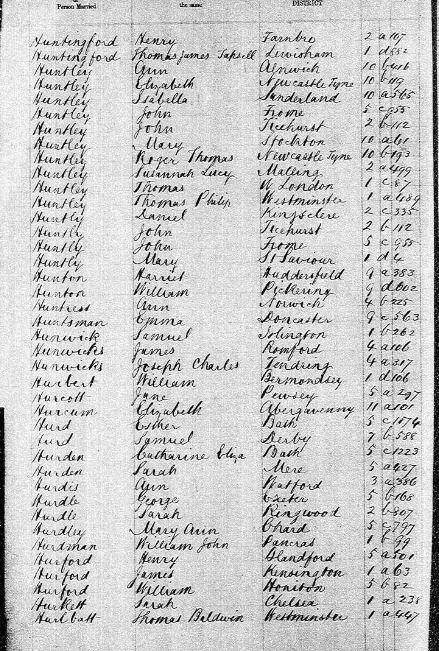 Person Married. the same. DISTRICT
Huntingford Henry Farnbro 2 a 107
Huntingford Thomas James Tapsell Lewisham 1 d 852
Huntley Ann Alnwick 10 b 416
Huntley Elizabeth Newcastle Tyne 10 b 119
Huntley Isabella Sunderland 10 a 565
Huntley John Frome 5 c 955
Huntley John Ticehurst 2 b 112
Huntley Mary Stockton 10 a 61
Huntley Roger Thomas Newcastle Tyne 10 b 193
Huntley Susannah Lucy Malling 2 a 499
Huntley Thomas W London 1 c 87
Huntley Thomas Philip Westminster 1 a 489
Huntly Daniel Kingsclere 2 c 335
Huntly John Ticehurst 2 b 112
Huntly John Frome 5 c 955
Huntly Mary St Saviour 1 d 4
Hunton Harriet Huddersfield 9 a 383
Hunton William Pickering 9 d 602
Huntress Ann Norwich 4 b 225
Huntsman Emma Doncaster 9 c 563
Hunwick Samuel Islington 1 b 262
Hunwicks James Romford 4 a 106
Hunwicks Joseph Charles Tendring 4 a 317
Hurbert William Bermondsey 1 d 106
Hurcott Jane Pewsey 5 a 297
Hurcum Elizabeth Abergavenny 11 a 101
Hurd Esther Bath 5 c 1174
Hurd Samuel Derby 7 b 588
Hurden Catharine Eliza Bath 5 c 1223
Hurden Sarah Mere 5 a 427
Hurdis Ann Watford 3 a 386
Hurdle George Exeter 5 b 168
Hurdle Sarah Ringwood 2 b 807
Hurdley Mary Ann Chard 5 c 797
Hurdman William John Pancras 1 b 99
Hurford Henry Blandford 5 a 501
Hurford James Kensington 1 a 63
Hurford William Honiton 5 b 82
Hurkett Sarah Chelsea 1 a 238
Hurlbatt Thomas Baldwin Westminster 1 a 447